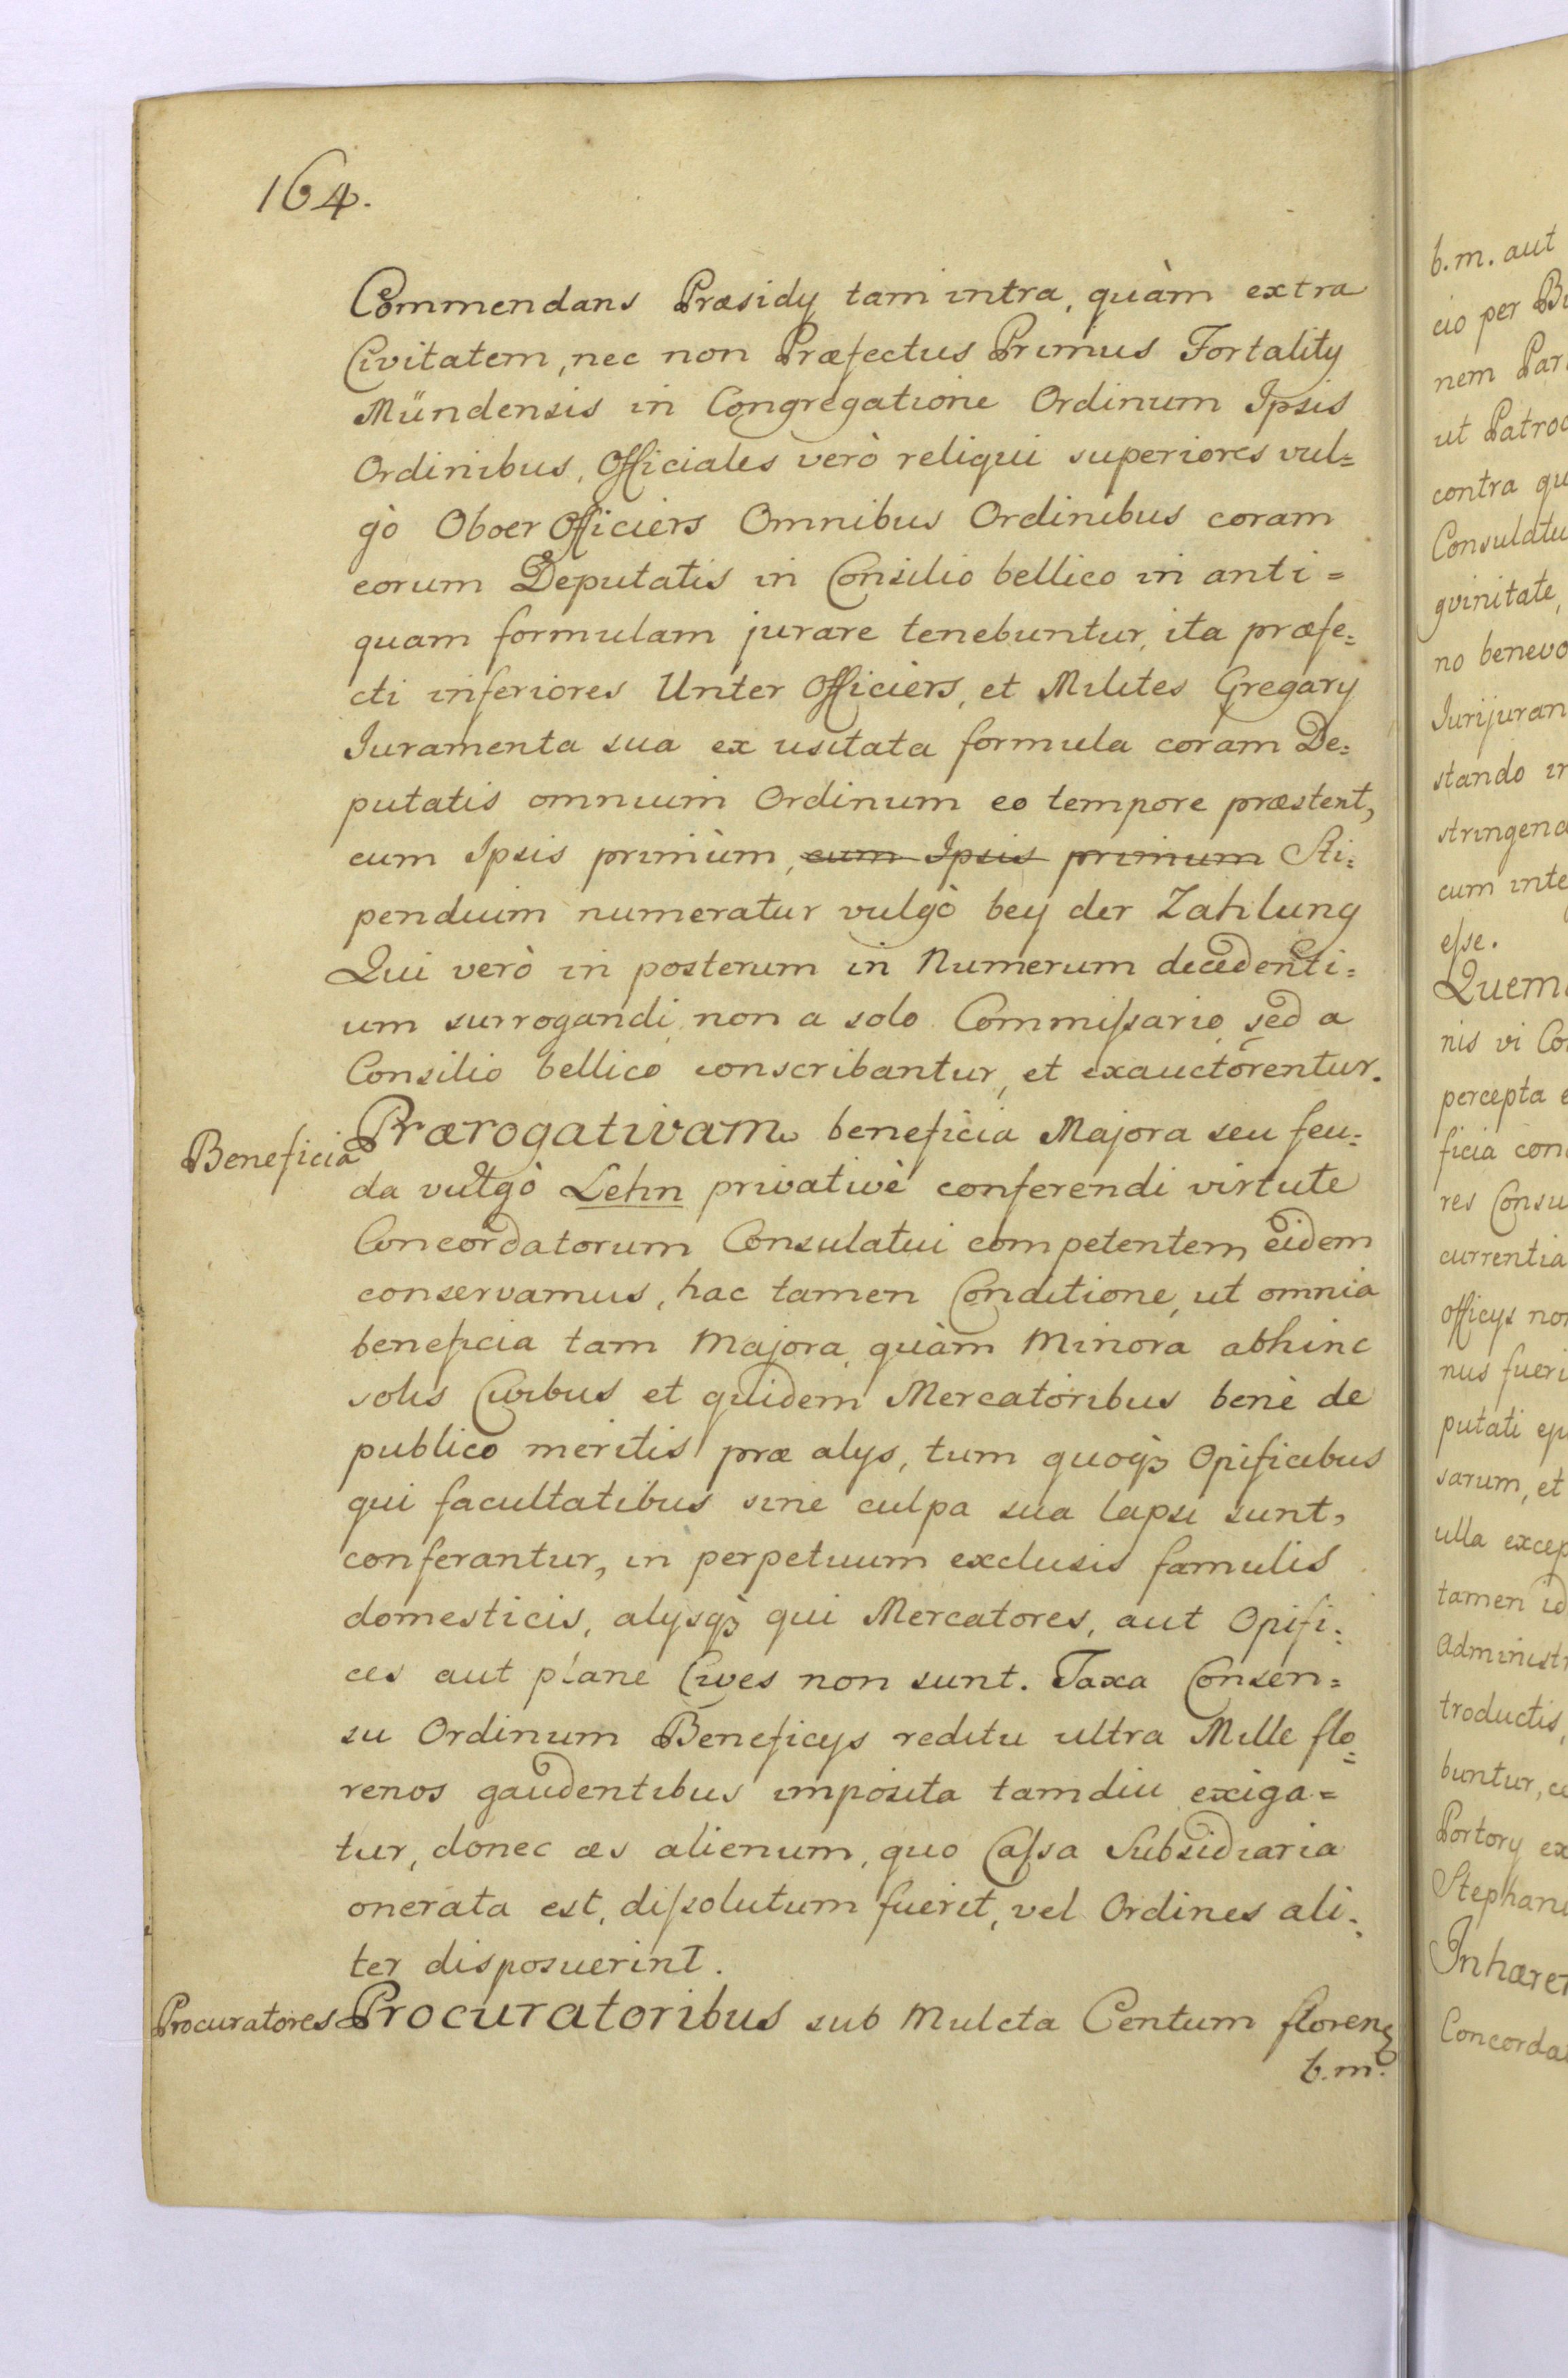 164.
Commendans Præsidy tam intra, quàm extra
Civitatem, nec non Præfectus Primus Fortality
Mündensis in Congregatione Ordinum Ipsis
Ordinibus, Officiales verò reliqui superiores vul=
gò Oboer Officiers Omnibus Ordinibus coram
eorum Deputatis in Consilio bellico in anti=
quam formulam jurare tenebuntur, ita præfe=
cti inferiores Unter Officiers, et Milites Gregary
Iuramenta sua ex usitata formula coram De=
putatis omnium Ordinum eo tempore præstent,
cum Ipsis primùm, cum Ipsis primum Sti=
pendium numeratur vulgò bey der Zahlung
Qui verò in posterum in Numerum decedenti=
um surrogandi, non a solo Commissario, sed a
Consilio bellico conscribantur, et exauctorentur.
Beneficia
Prærogativam beneficia Majora seu feu=
da vulgò Lehn privativè conferendi virtute
Concordatorum Consulatui competentem eidem
conservamus, hac tamen Conditione, ut omnia
beneficia tam Majora, quàm Minora abhinc
solis Civibus et quidem Mercatoribus benè de
publico meritis præ alys, tum quoqꝫ Opificibus
qui facultatibus sine culpa sua lapsi sunt,
conferantur, in perpetuum exclusis famulis
domesticis, alysqꝫ qui Mercatores, aut Opifi=
ces aut plane Cives non sunt. Taxa Consen=
su Ordinum Beneficys reditu ultra Mille flo=
renos gaudentibus imposita tamdiu exiga=
tur, donec æs alienum, quo Cassa Subsidiaria
onerata est, dissolutum fuerit, vel Ordines ali=
ter disposuerint.
Procuratores
Procuratoribus sub Mulcta Centum floren
b.m.
b.m. aut
cio per
nem
ut
contra
Consulatu
gvinitate,
no
Iurijuran
stando
stringend
cum inte
esse.
Quem
nis vi
percepta
ficia
res Consu
currentia
officys
nus
putati
sarum, et
ulla
tamen
Administr
troductis,
buntur,
Portory
Stephani
Inhærer
Concorda